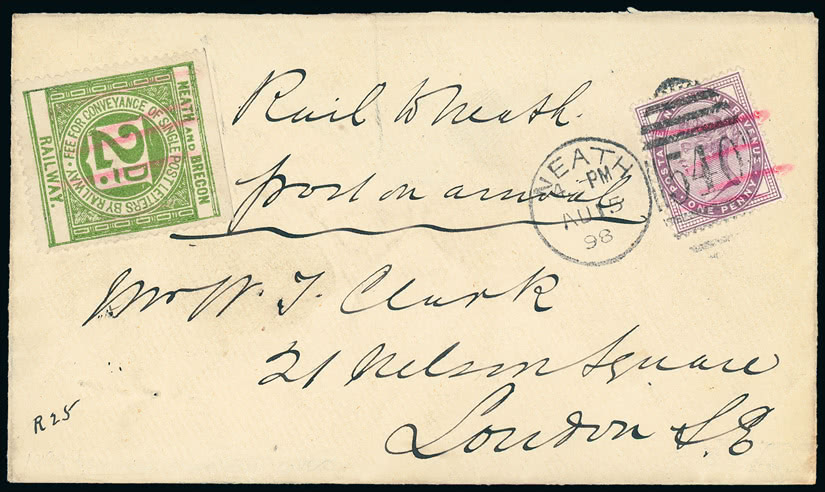 NEATH AND BRECON
RAILWAY.
FEE FOR CONVEYANCE OF SINGLE POST LETTERS BY RAILWAY
2D.
Rail to Neath.
post on arrival
NEATH
4 - PM
AU 15
98
540
POSTAGE AND
REVENUE
ONE PENNY
Mr W. T. Clark
21 Nelson Square
London S.E
R 25